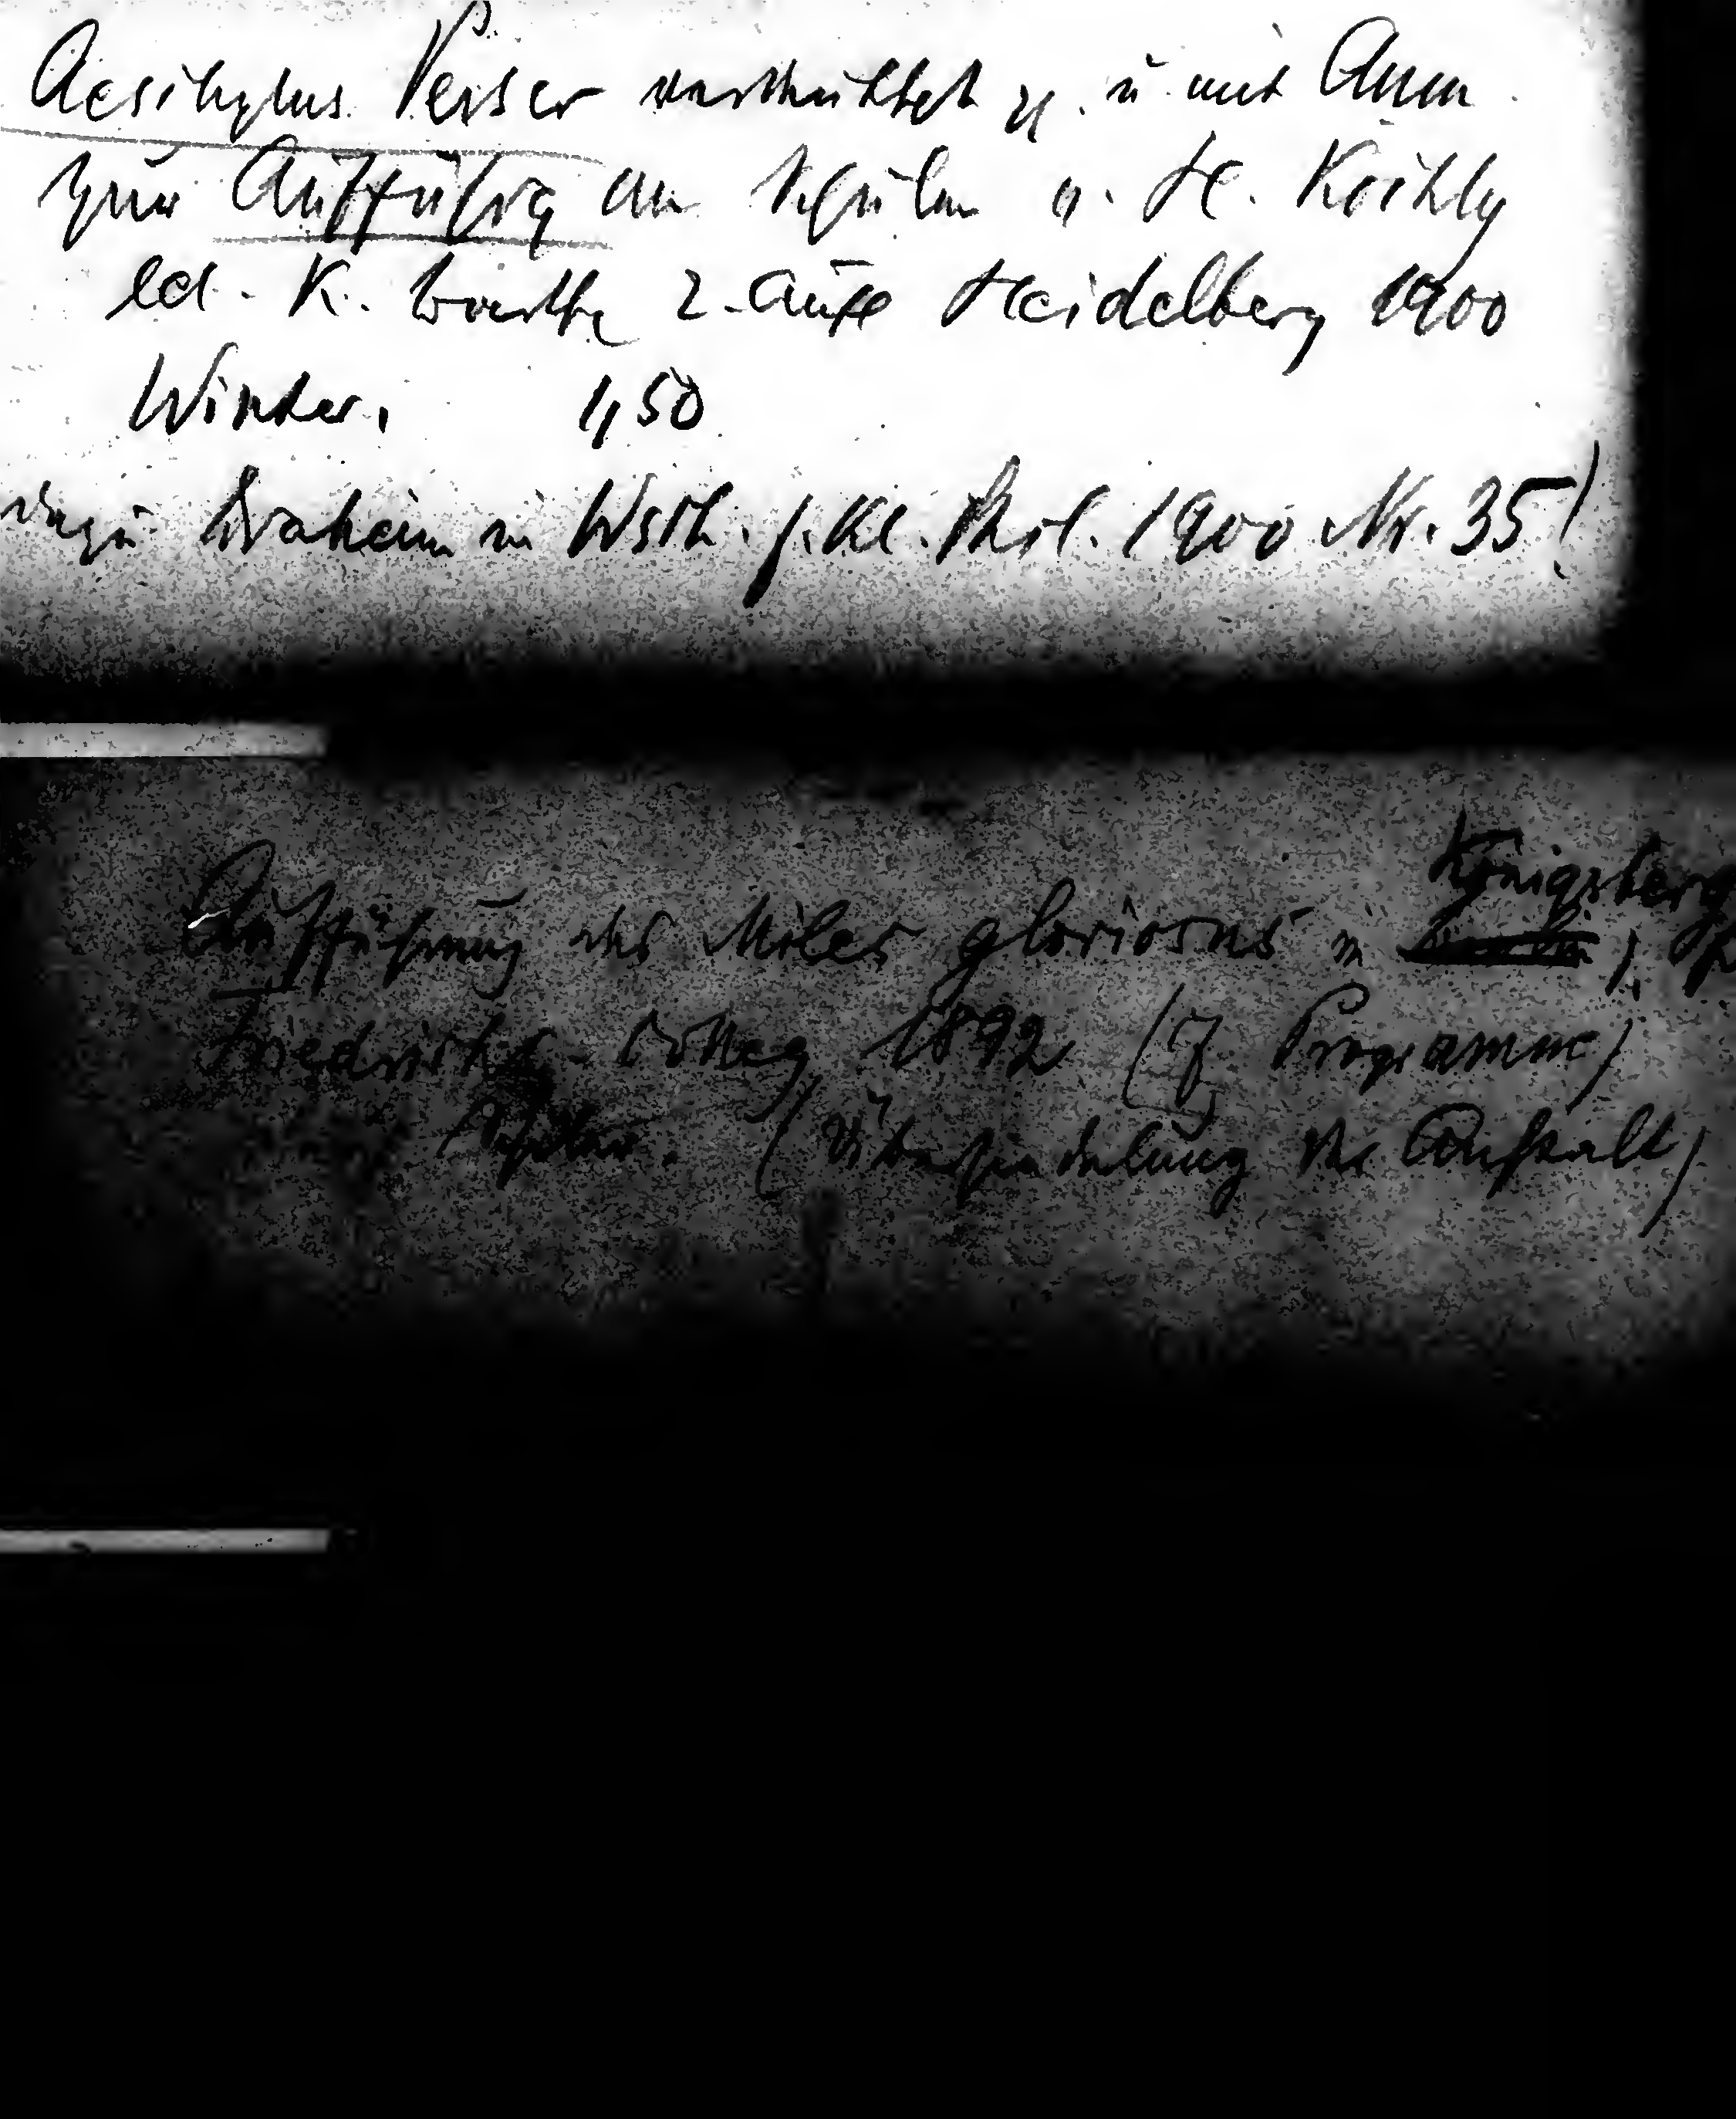 Aeschylus Perser verdeutscht u. mit Anm
zur Aufführg an Schulen v. H. Köchly
ed. K. Bartsch 2. Aufl Heidelberg 1900
Winter. 1,50
dazu Draheim in Wsch. f. kl. Phil. 1900 Nr. 35!
Königsberg
Aufführung des Miles gloriosus in
Friedrichs-Colleg 1892 (cf. Programm)
(Übersiedelung der Anstalt)